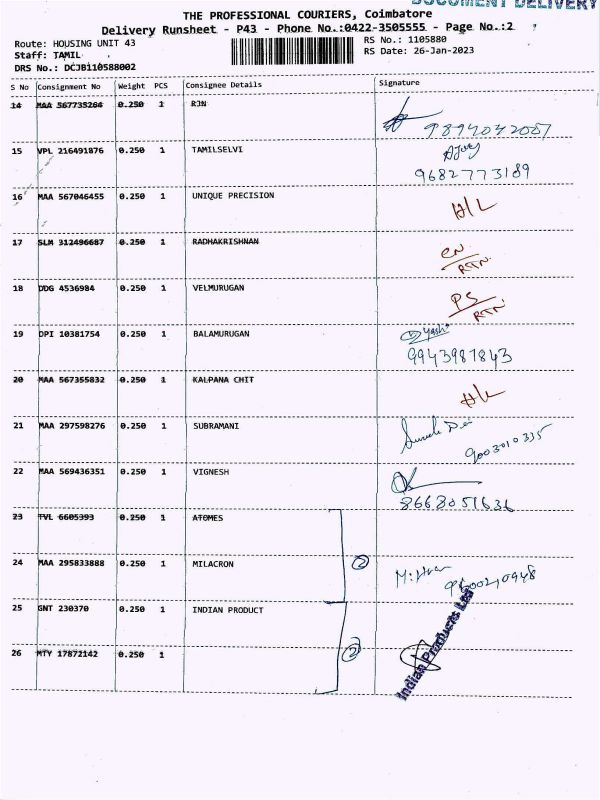 DOCUMENT DELIVERY
THE PROFESSIONAL COURIERS, Coimbatore
Delivery Runsheet - P43 - Phone No.:0422-3505555 - Page No.:2
Route: HOUSING UNIT 43
RS No.: 1105880
Staff: TAMIL
RS Date: 26-Jan-2023
DRS No.: DCJBi10588002
S No Consignment No Weight PCS Consignee Details Signature
14 MAA 567735264 0.250 1 RJN
9894032007
15 VPL 216491876 0.250 1 TAMILSELVI Ajay
9682773189
16 MAA 567046455 0.250 1 UNIQUE PRECISION H/L
17 SLM 312496687 0.250 1 RADHAKRISHNAN CN/RTN
18 DDG 4536984 0.250 1 VELMURUGAN PS/RTN
19 DPI 10381754 0.250 1 BALAMURUGAN Yash
9943987843
20 MAA 567355832 0.250 1 KALPANA CHIT H/L
21 MAA 297598276 0.250 1 SUBRAMANI
9003010335
22 MAA 569436351 0.250 1 VIGNESH
8668051636
23 TVL 6605393 0.250 1 ATOMES
24 MAA 295833888 0.250 1 MILACRON 2
25 GNT 230370 0.250 1 INDIAN PRODUCT
26 MTY 17872142 0.250 1 2
Indian Products Ltd